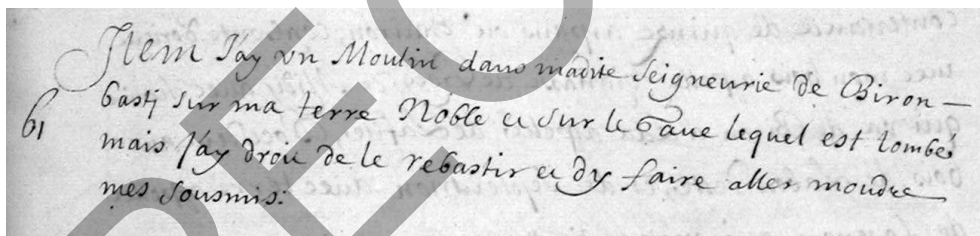 Item J'ay un Moulin dans madite Seigneurie de Biron —
61
basti sur ma terre Noble et sur le Gave lequel est tombé
mais J'ay droit de le rebastir et dy faire aller moudre
mes Sousmis: